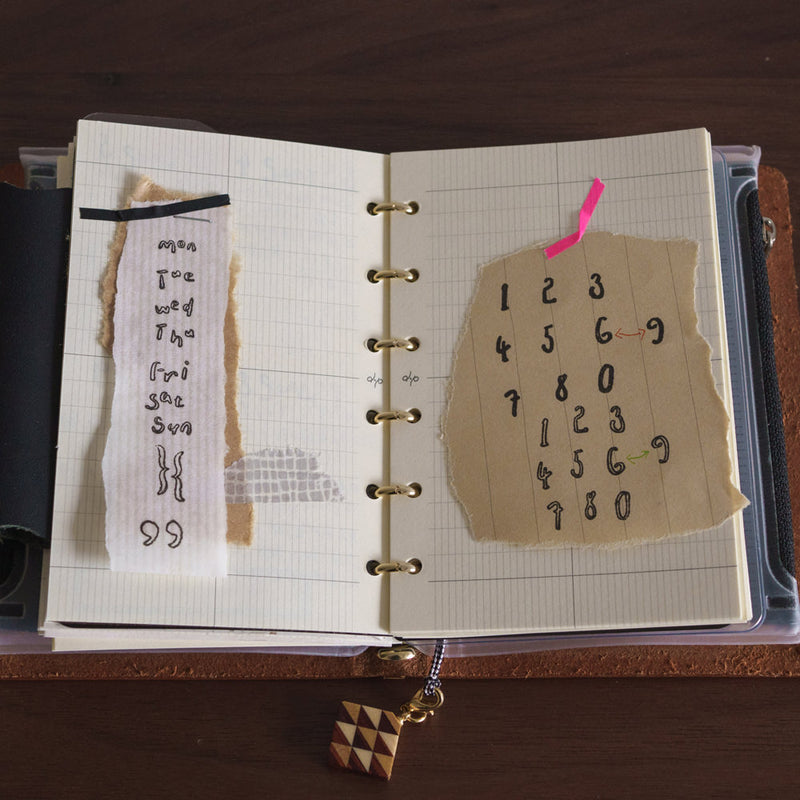 mon
Tue
wed
Thu
Fri
sat
sun
}{
99
1 2 3
4 5 6 ↔ 9
7 8 0
1 2 3
4 5 6 ↔ 9
7 8 0